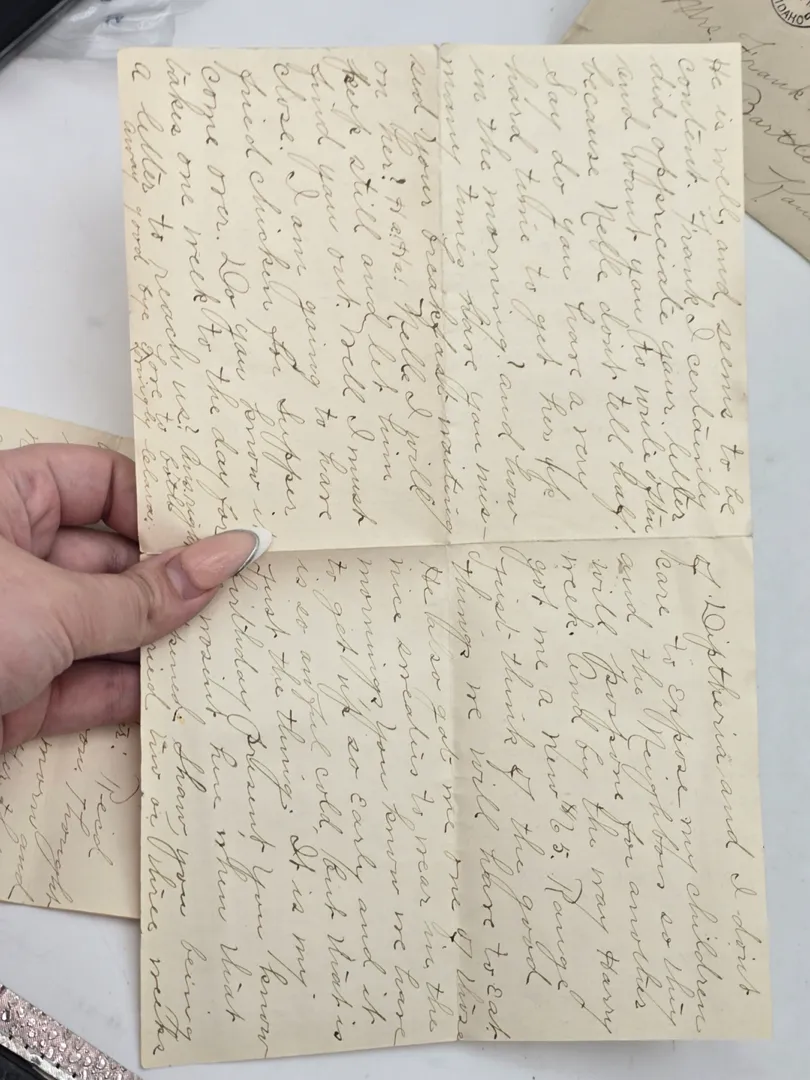 of Diptheria and I don't
care to expose my children
and the Neighbors so they
will pospone for another
week. And by the way Harry
got me a new $65. Range
Just think of the good
things we will have to eat.
He also got me one of those
nice sweaters to wear in the
mornings you know we have
to get up so early and it
is so awful cold, but that is
Just the thing. It is my
birthday present you know
here when that
Shaw you being
two or three weeks
He is well, and seems to be
content. Frank I certainly
did appreciate your letter
and want you to write often
because Nelle don't tell half.
Say do you have a very
hard time to get her up
in the morning? and how
many times have you mis-
sed your breakfast waiting
on her? Ha Ha! Nelle I will
keep still and let him
find you out. Well I must
close. I am going to have
fried chicken for Supper
come over. Do you know it
takes one week to the day for
a letter to reach us?
away good bye Love to both
IDAHO
Mrs. Frank